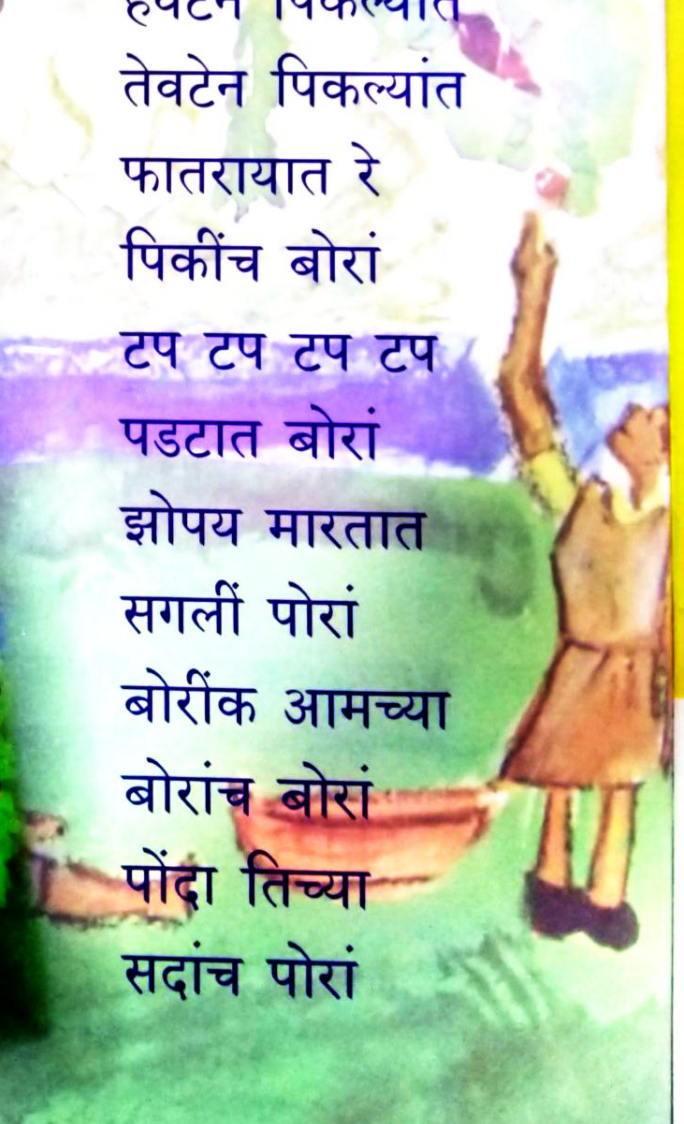 हेवटेन पिकल्यांत
तेवटेन पिकल्यांत
फातरायात रे
पिकींच बोरां
टप टप टप टप
पडटात बोरां
झोपय मारतात
सगलीं पोरां
बोरींक आमच्या
बोरांच बोरां
पोंदा तिच्या
सदांच पोरां